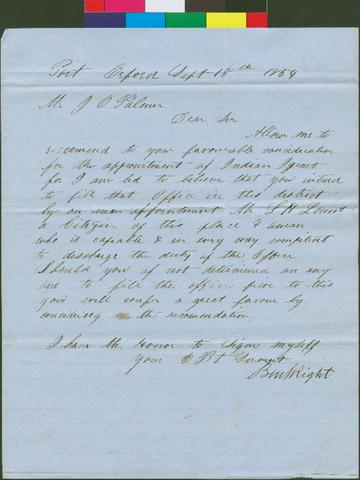 Port Orford Sept 18th 1854
Mr J O Palmer
Dear Sir
Allow me to
recomend to your favourable consideration
for the appointment of Indian Agent
for I am led to believe that you intend
to fill that Office in this district
by an new appointment Mr S H
a Citizen of this place &
who is capable & in evry way compitent
to discharge the duty of the Office
Should you if not determined on any
one to fill the office prior to this
you will confer a great favour by
considering the recomendation
I have the Honor to Sign myself
Your O B t Servant
Ben Wright